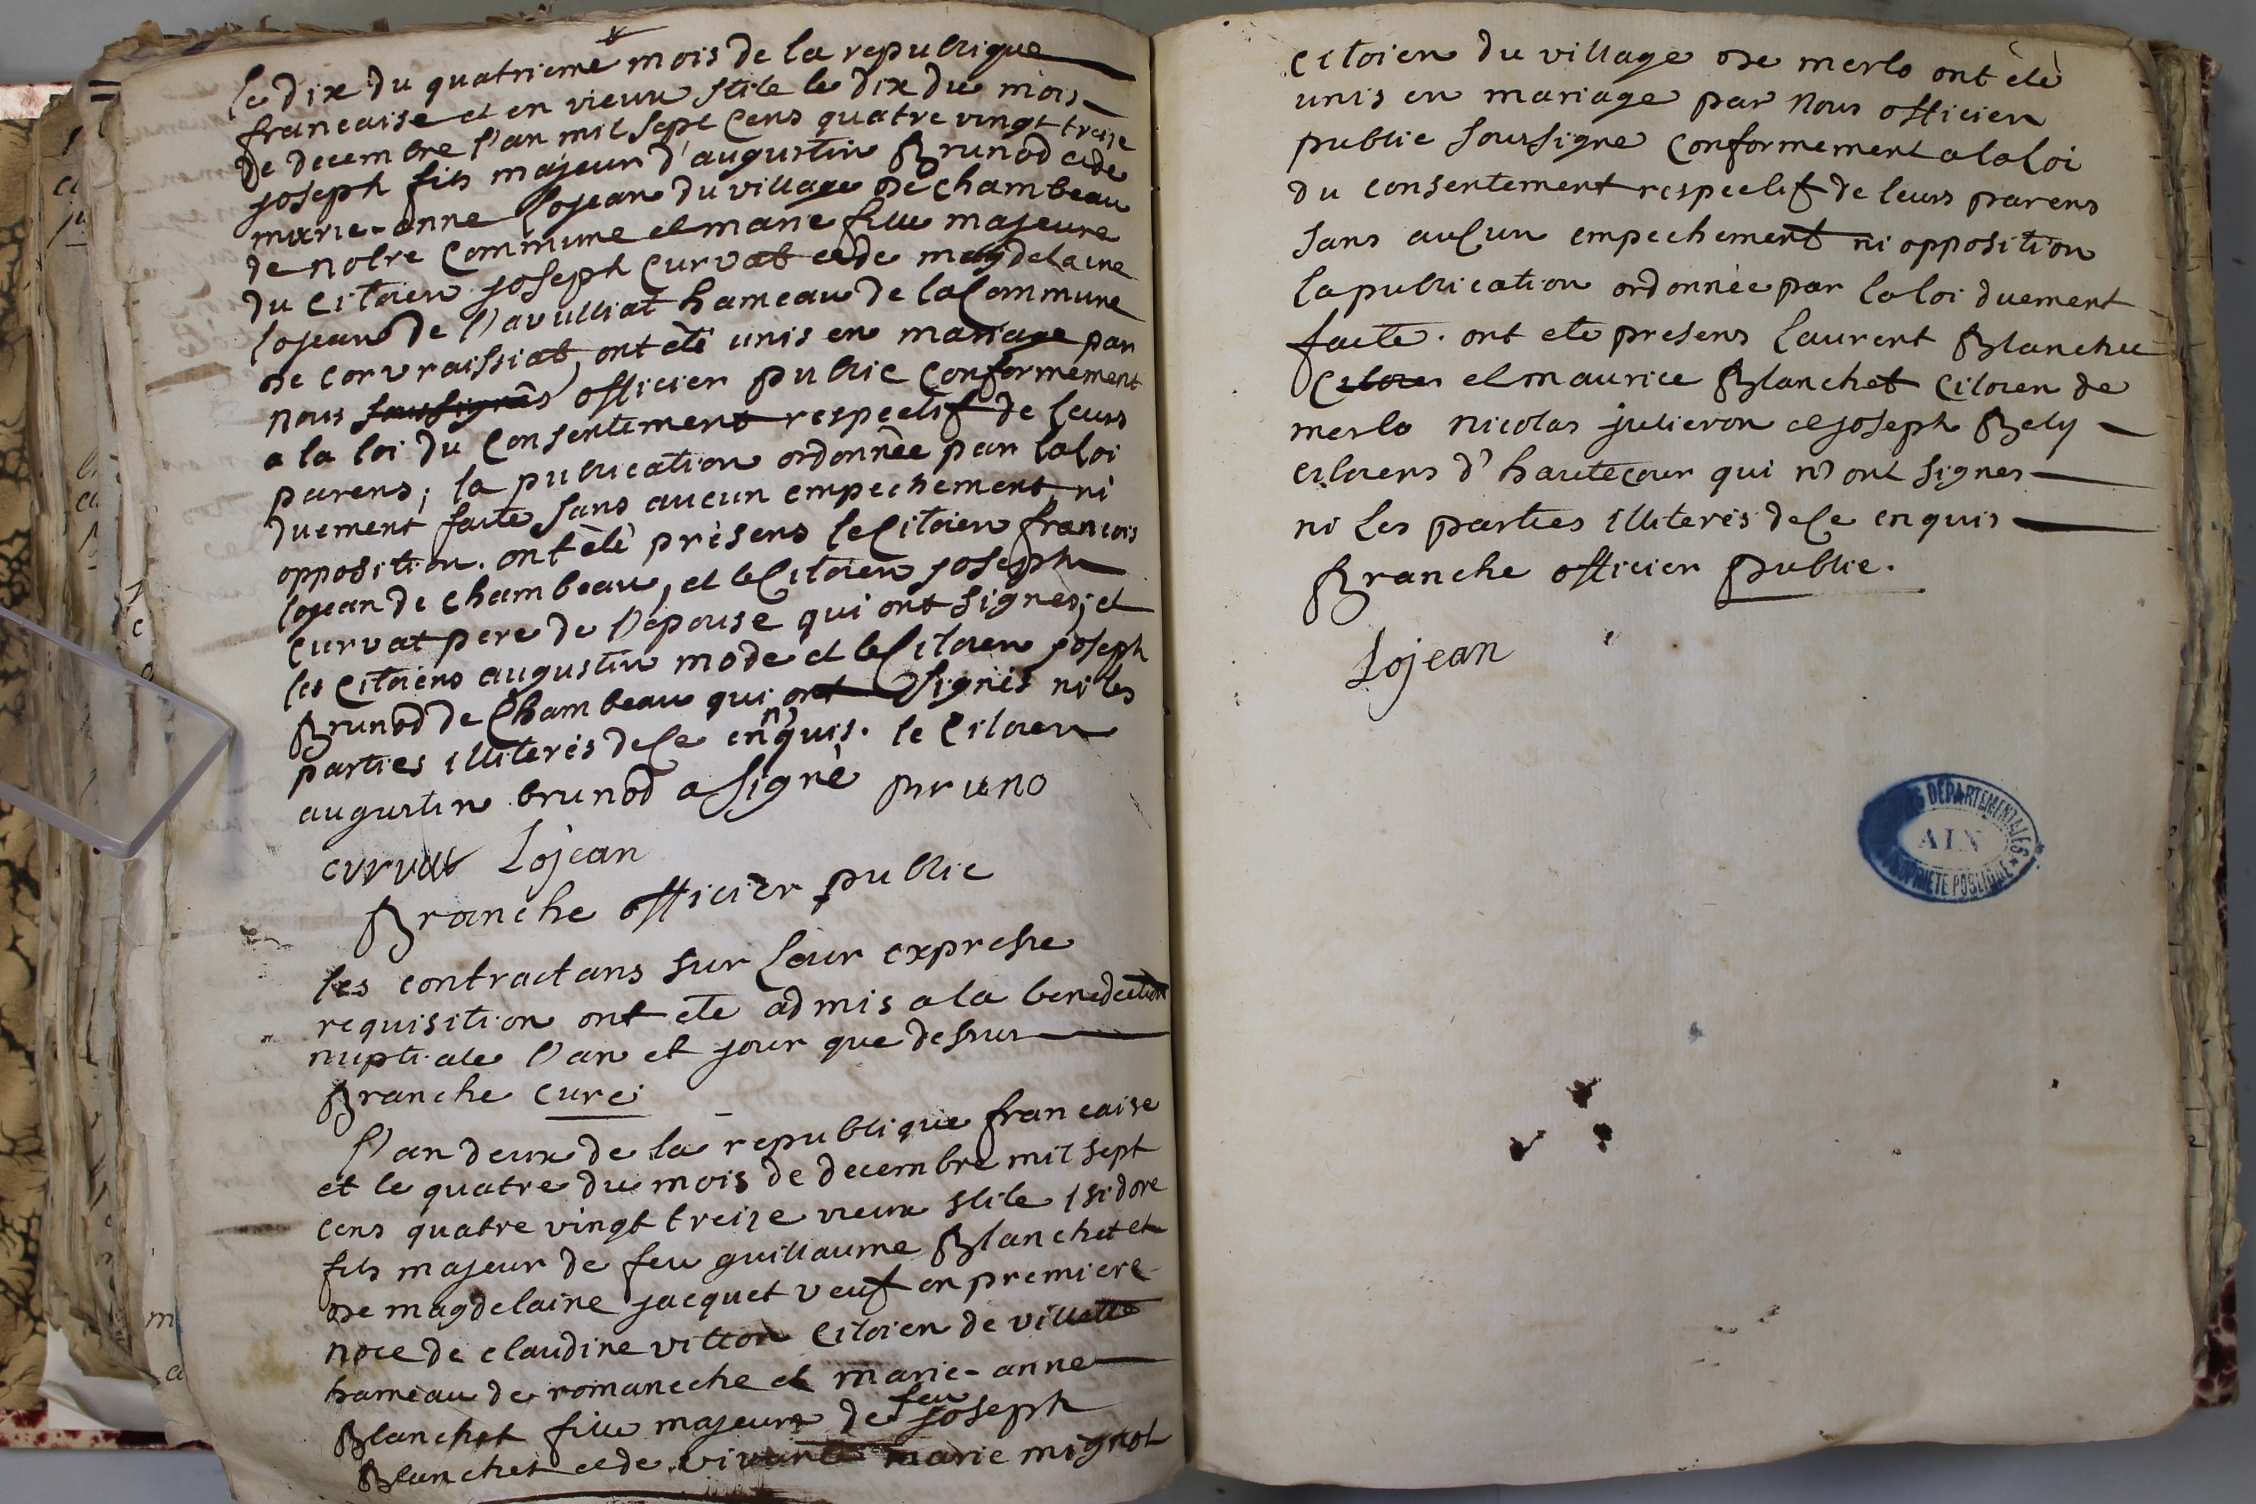 le dix du quatrieme mois de la republique
francaise et en vieux stile le dix du mois
de decembre l'an mil sept cens quatre vingt treize
joseph fils majeur d'augustin Brunod et de
marie-anne lojean du village de chambeau
de notre commune et marie fille majeure
du citoien joseph curvat et de magdelaine
lojean de l'avulliat hameau de la commune
de corvraissiat, ont èté unis en mariage par
nous soussignés officier public conformement
a la loi du consentement respectif de leurs
parens; la publication ordonnée par la loi
duement faite sans aucun empechement ni
opposition. ont èté présens le citoien francois
lojean de chambeau, et le citoien joseph
curvat pere de l'epouse qui ont signes; et
les citoiens augustin mode et le citoien joseph
Brunod de chambeau qui ont signés ni les
parties illiterés de ce enquis. le citoien
augustin brunod a signé bruno
curvat Lojean
Branche officier public
les contractans sur leur expresse
requisition ont ete admis a la benediction
nuptiale l'an et jour que dessus
Branche curé
l'an deux de la republique francaise
et le quatre du mois de decembre mil sept
cens quatre vingt treize vieux stile isidore
fils majeur de feu guillaume Blanchet et
de magdelaine jacquet veuf en premiere
noce de claudine vitton citoien de villette
hameau de romaneche et marie-anne
Blanchet fille majeure de feu joseph
Blanchet et de vivante marie mignot
citoien du village de merlo ont èté
unis en mariage par nous officier
public soussigne conformement a la loi
du consentement respectif de leurs parens
sans aucun empechement ni opposition
la publication ordonnée par la loi duement
faite. ont ete presens laurent Blanchet
citoien et maurice Blanchet citoien de
merlo nicolas julieron et joseph Bely
citoiens d'hautecour qui n'ont signes
ni les parties illiterés de ce enquis
Branche officier public.
Lojean
DEPARTEMENTALES
AIN
PROPRIETE PUBLIQUE